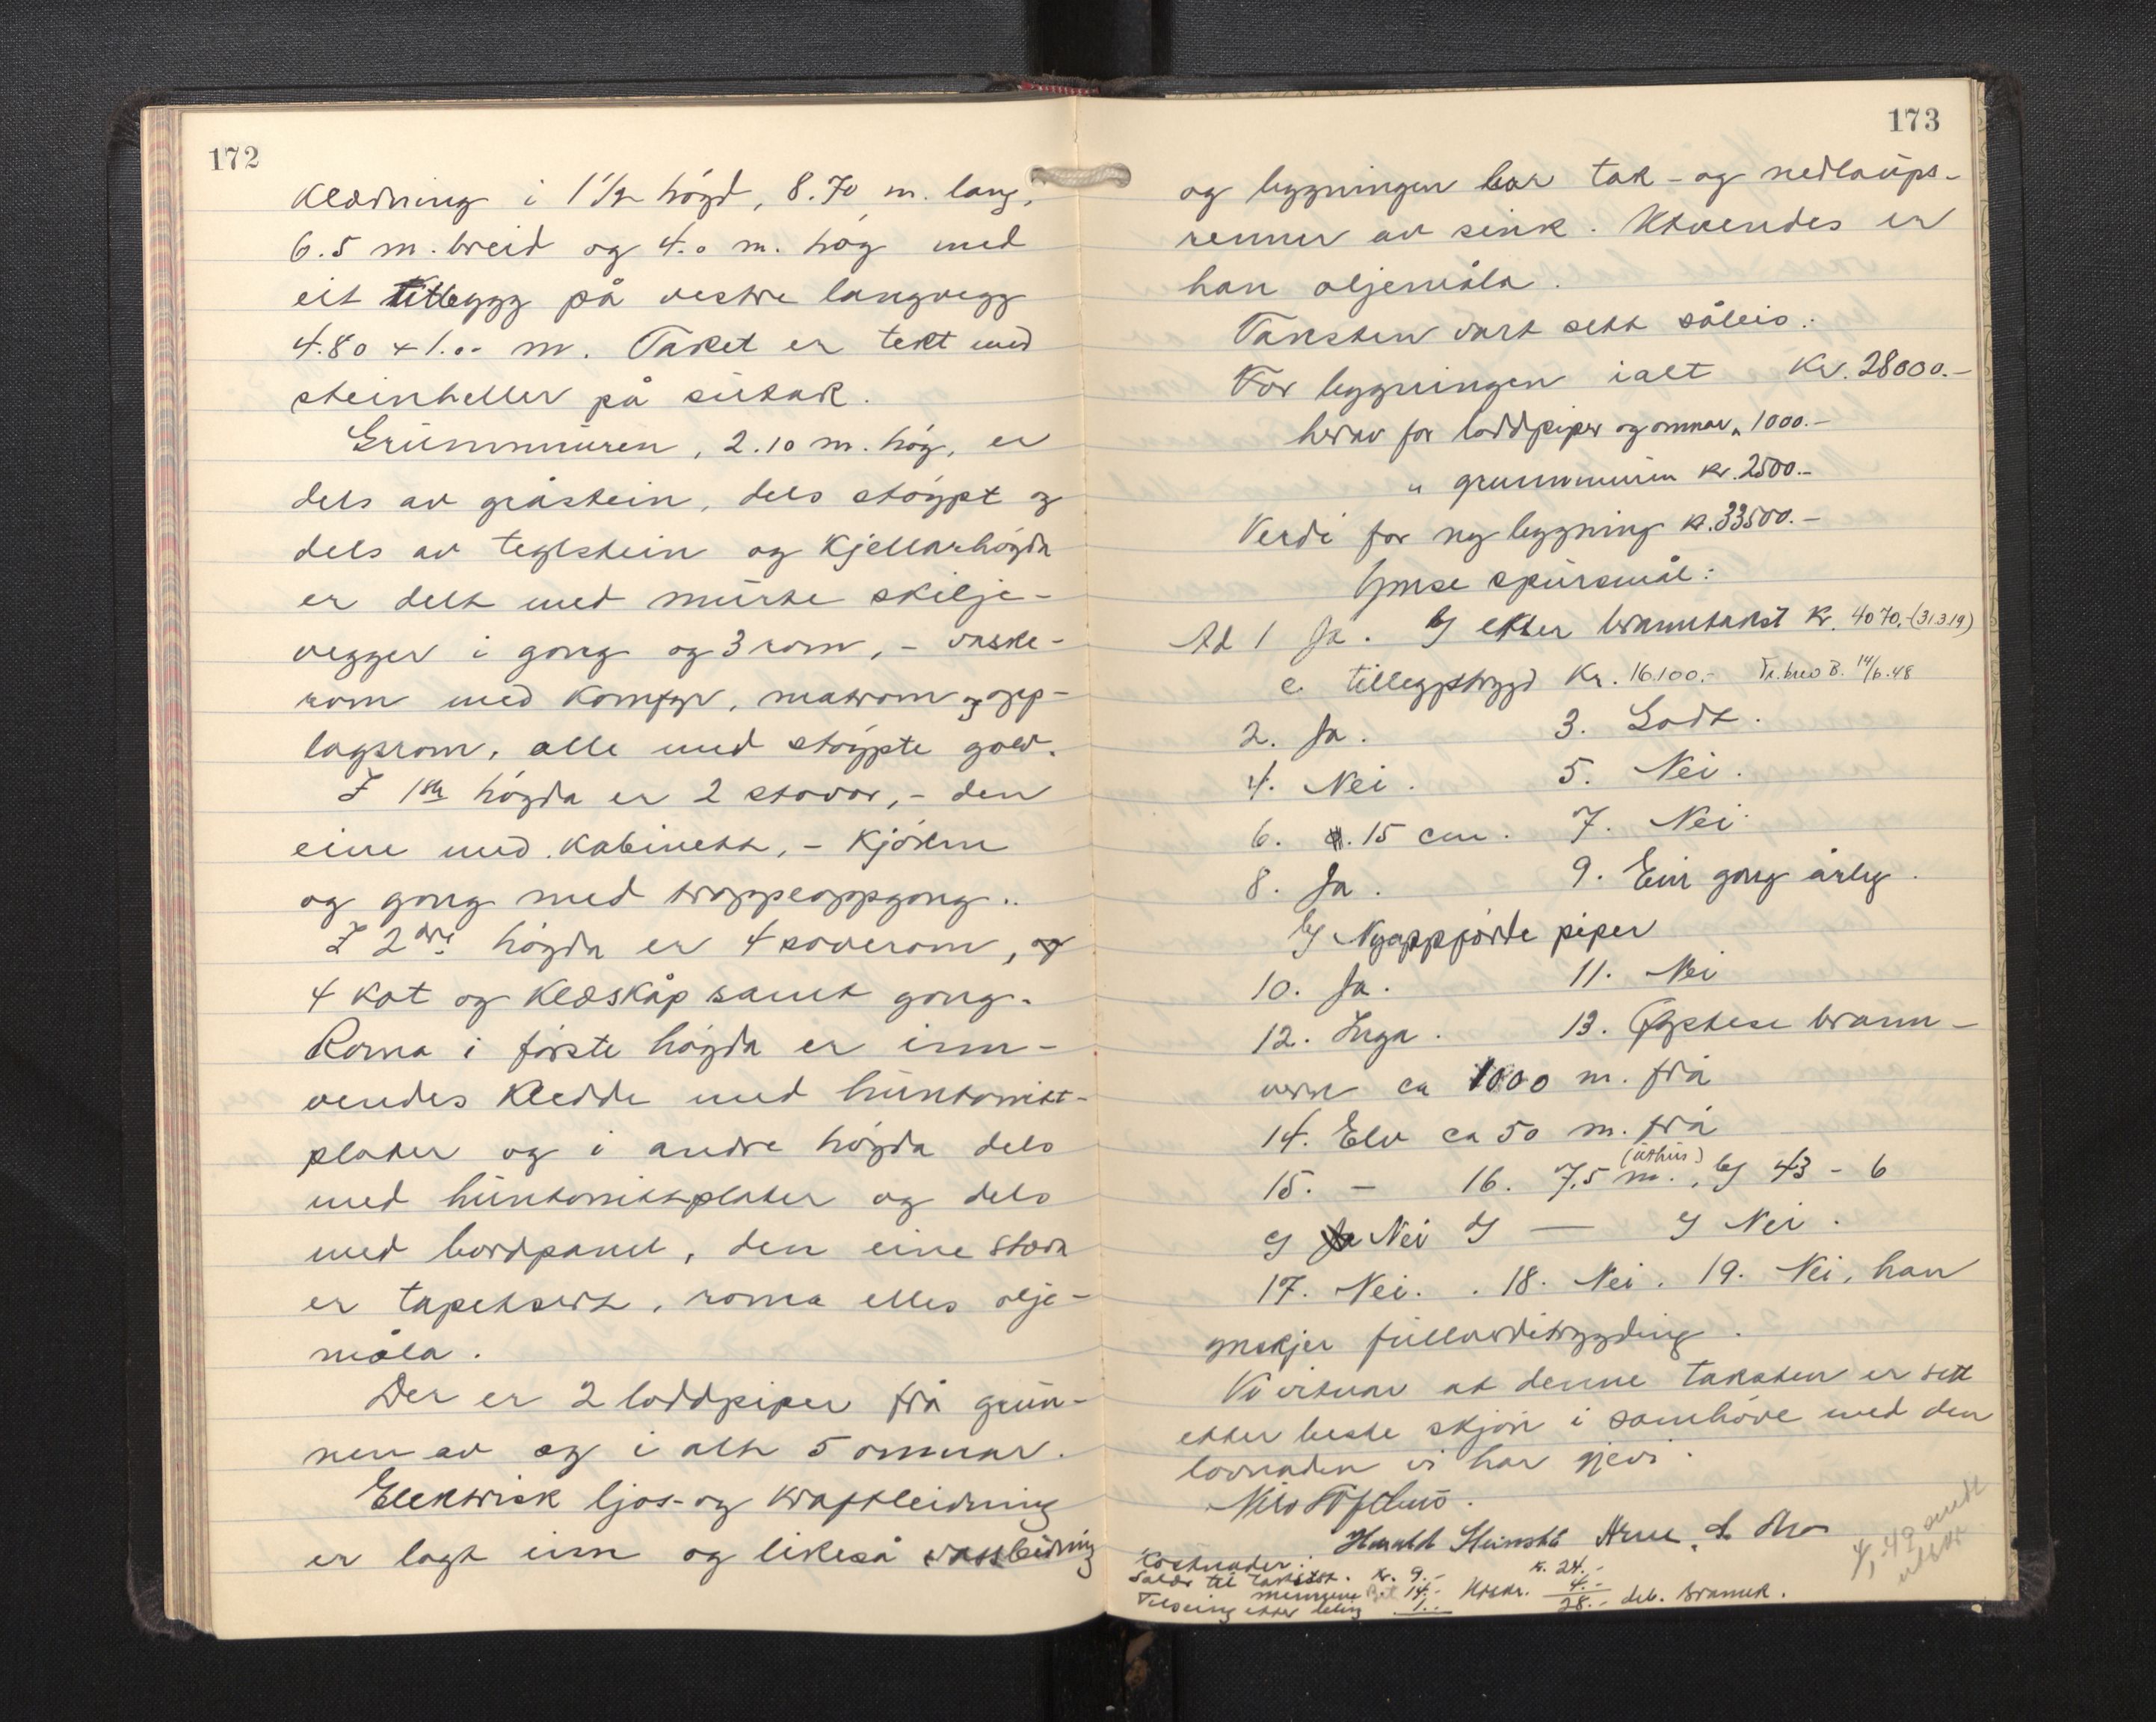 172
Klædning i 1½ högd, 8.70 m. lang,
6.5 m. breid og 4.0 m. høg med
eit tilbygg på vestre langvegg
4.80 x 1.00 m. Taket er tekt med
steinheller på sutak.
Grunnmuren, 2.10 m. høg, er
dels av gråstein, dels støypt og
dels av teglstein og Kjellarhögda
er delt med murte skilje-
vegger i gong og 3 rom, - vaske-
rom med Komfyr, matrom og opp-
lagsrom, alle med støypte golv.
I 1ste högda er 2 stover, - den
eine med Kabinett, - Kjöken
og gong med trappeoppgong..
I 2dre högda er 4 soverom,
4 kot og Klæskåp samt gong.
Roma i förste högda er inn-
vendes Kledde med huntonitt-
plater og i andre högda dels
med huntonittplater og dels
med bordpanel, den eine stova
er tapetsert, roma elles olje-
måla.
Der er 2 loddpiper frå grun-
nen av og i alt 5 omnar.
Elektrisk ljos- og kraftleidning
er lagt inn og likeså vassleidning
173
og bygningen har tak- og nedlaups-
renner av sink. Utvendes er
han oljemåla.
Taksten vart sett såleis:
For bygningen ialt Kr. 28000.-
herav for loddpiper og omnar „ 1000.-
„ grunnmuren kr. 2500.-
Verdi for ny bygning kr. 33500.-
Ymse spursmål:
Ad 1 Ja. b) etter branntakst Kr. 4070.-(31.3.19)
c. tilleggstrygd Kr. 16.100.- Fr. brev B. 14/6.48
2. Ja. 3. Godt.
4. Nei. 5. Nei.
6. 15 cm. 7. Nei.
8. Ja. 9. Ein gong årleg.
b) Nyoppförte piper
10. Ja. 11. Nei
12. Inga. 13. Öystese brann-
vern ca 1000 m. frå
14. Elv ca 50 m. frå
(uthus)
15. - 16. 7.5 m., b) 43 - 6
c) Nei d) — e) Nei.
17. Nei. 18. Nei. 19. Nei, han
ynskjer fullverditrygding.
Vi vitnar at denne taksten er sett
etter beste skjön i samhöve med den
lovnaden vi har gjevi.
Nils Tofthus.
Harald Arne
Kostnader:
Kr. 9.- K. 24.-
14.- 4.-
Tilseing etter deling 1.- 28.- deb. Brannk.